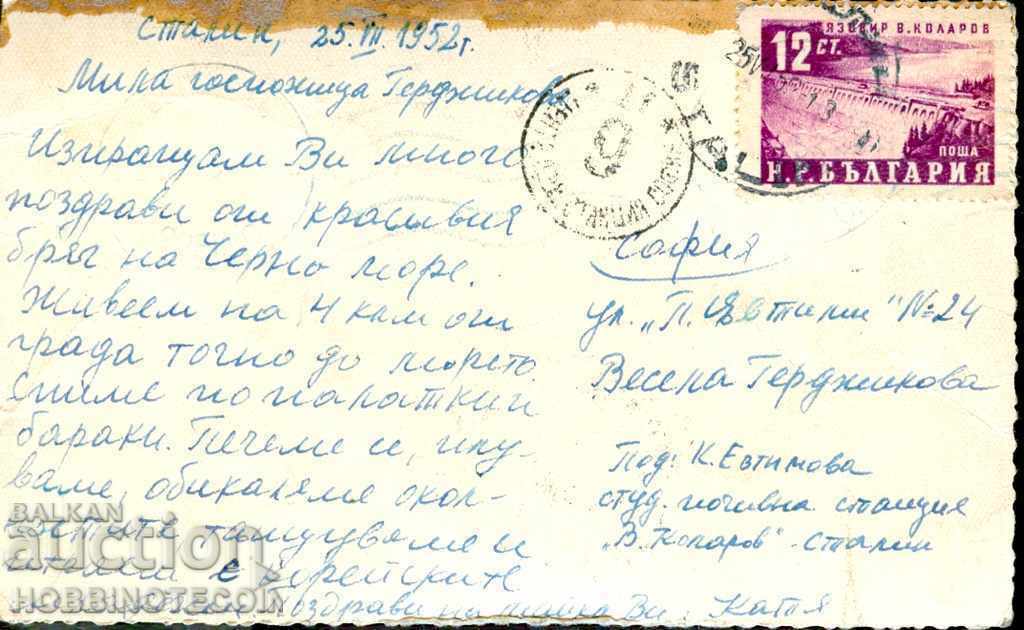 Сталин, 25.VII.1952г.
Мила госпожица Герджикова
Изпращам Ви много
поздрави от красивия
бряг на Черно море.
Живеем на 4 км от
града точно до морето.
Спиме по палатки и
бараки. Печеме се, плу-
ваме, обикаляме окол-
ностите, танцуваме и
с корейските
поздрави на майка Ви. Катя
ЯЗОВИР В. КОЛАРОВ
12 СТ.
ПОЩА
Н.Р. БЪЛГАРИЯ
София
ул. „П. Евтимий" № 24
Весела Герджикова
Под: К. Евтимова
студ. почивна станция
„В. Коларов" - Сталин
BALKAN
auction
HOBBINOTECOIN